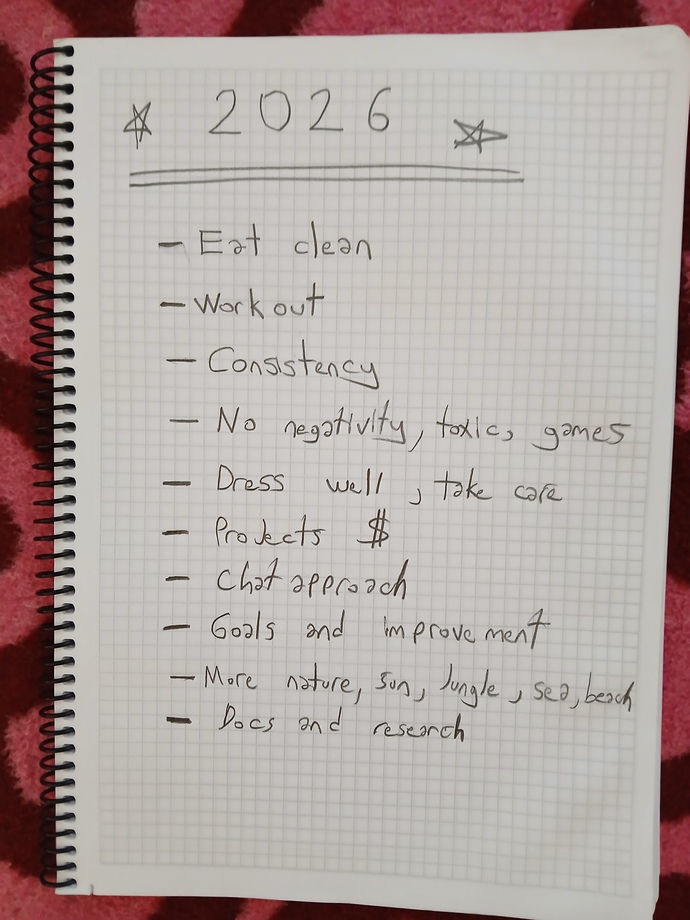 2026
- Eat clean
- Work out
- Consistency
- No negativity, toxic, games
- Dress well, take care
- Projects $
- Chat approach
- Goals and improvement
- More nature, sun, jungle, sea, beach
- Docs and research